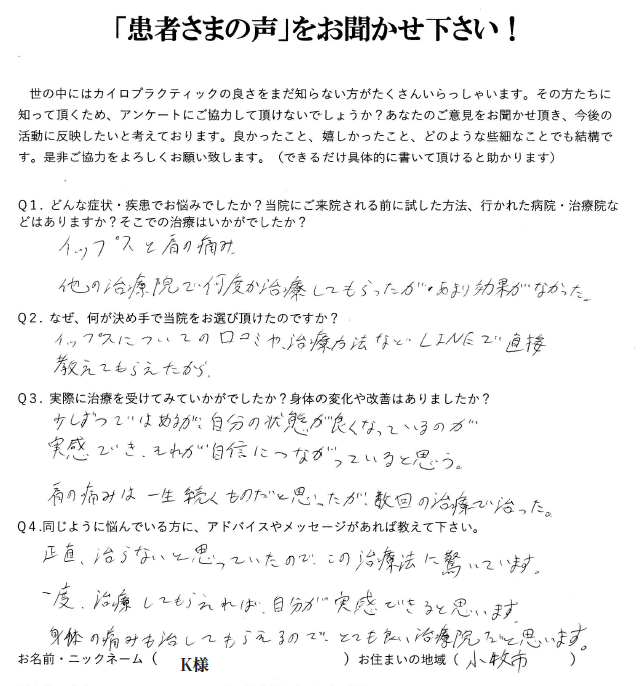 「患者さまの声」をお聞かせ下さい！
世の中にはカイロプラクティックの良さをまだ知らない方がたくさんいらっしゃいます。その方たちに
知って頂くため、アンケートにご協力して頂けないでしょうか？あなたのご意見をお聞かせ頂き、今後の
活動に反映したいと考えております。良かったこと、嬉しかったこと、どのような些細なことでも結構で
す。是非ご協力をよろしくお願い致します。（できるだけ具体的に書いて頂けると助かります）
Q1．どんな症状・疾患でお悩みでしたか？当院にご来院される前に試した方法、行かれた病院・治療院な
どはありますか？そこでの治療はいかがでしたか？
イップスと肩の痛み
他の治療院で何度か治療してもらったが、あまり効果がなかった。
Q2．なぜ、何が決め手で当院をお選び頂けたのですか？
イップスについての口コミや、治療方法などLINEで直接
教えてもらえたから。
Q3．実際に治療を受けてみていかがでしたか？身体の変化や改善はありましたか？
少しずつではあるが、自分の状態が良くなっているのが
実感でき、それが自信につながっていると思う。
肩の痛みは一生続くものだと思ったが、数回の治療で治った。
Q4.同じように悩んでいる方に、アドバイスやメッセージがあれば教えて下さい。
正直、治らないと思っていたので、この治療法に驚いています。
一度、治療してもらえれば、自分が実感できると思います。
身体の痛みも治してもらえるので、とても良い治療院だと思います。
お名前・ニックネーム（ K様 ）お住まいの地域（ 小牧市 ）